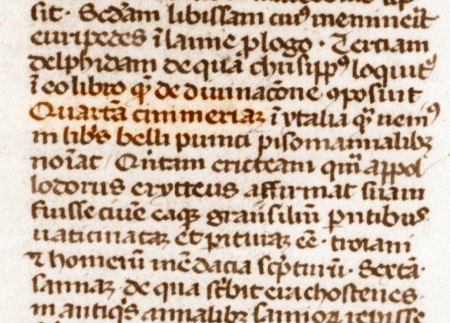 sit · Scd̄am libissam cuiꝰ meminerit
euripedes ī lamie plogo · Tertiam
delphidam de quā chrisippꝰ loquit᷑
ī eo libro qm̄ de diuinacōne ꝯposuit
Quartā cimmeriaꝫ ī ytalia qm̄ neuiꝰ
in libris belli punici piso in annalibꝫ
noīat · Quītam erictream quā appol
lodorus erytteus affirmat suam
fuisse ciuē eaqꝫ grais iliū ꝑtentibus
uaticinataꝫ et ꝑituraꝫ eē · troiam
⁊ homerū mēdacia scͥpturū · Sextā ·
samiaꝫ · de qua scͥbit erathostenes ·
in antiqͥs annalibꝫ samioꝝ reꝑisse